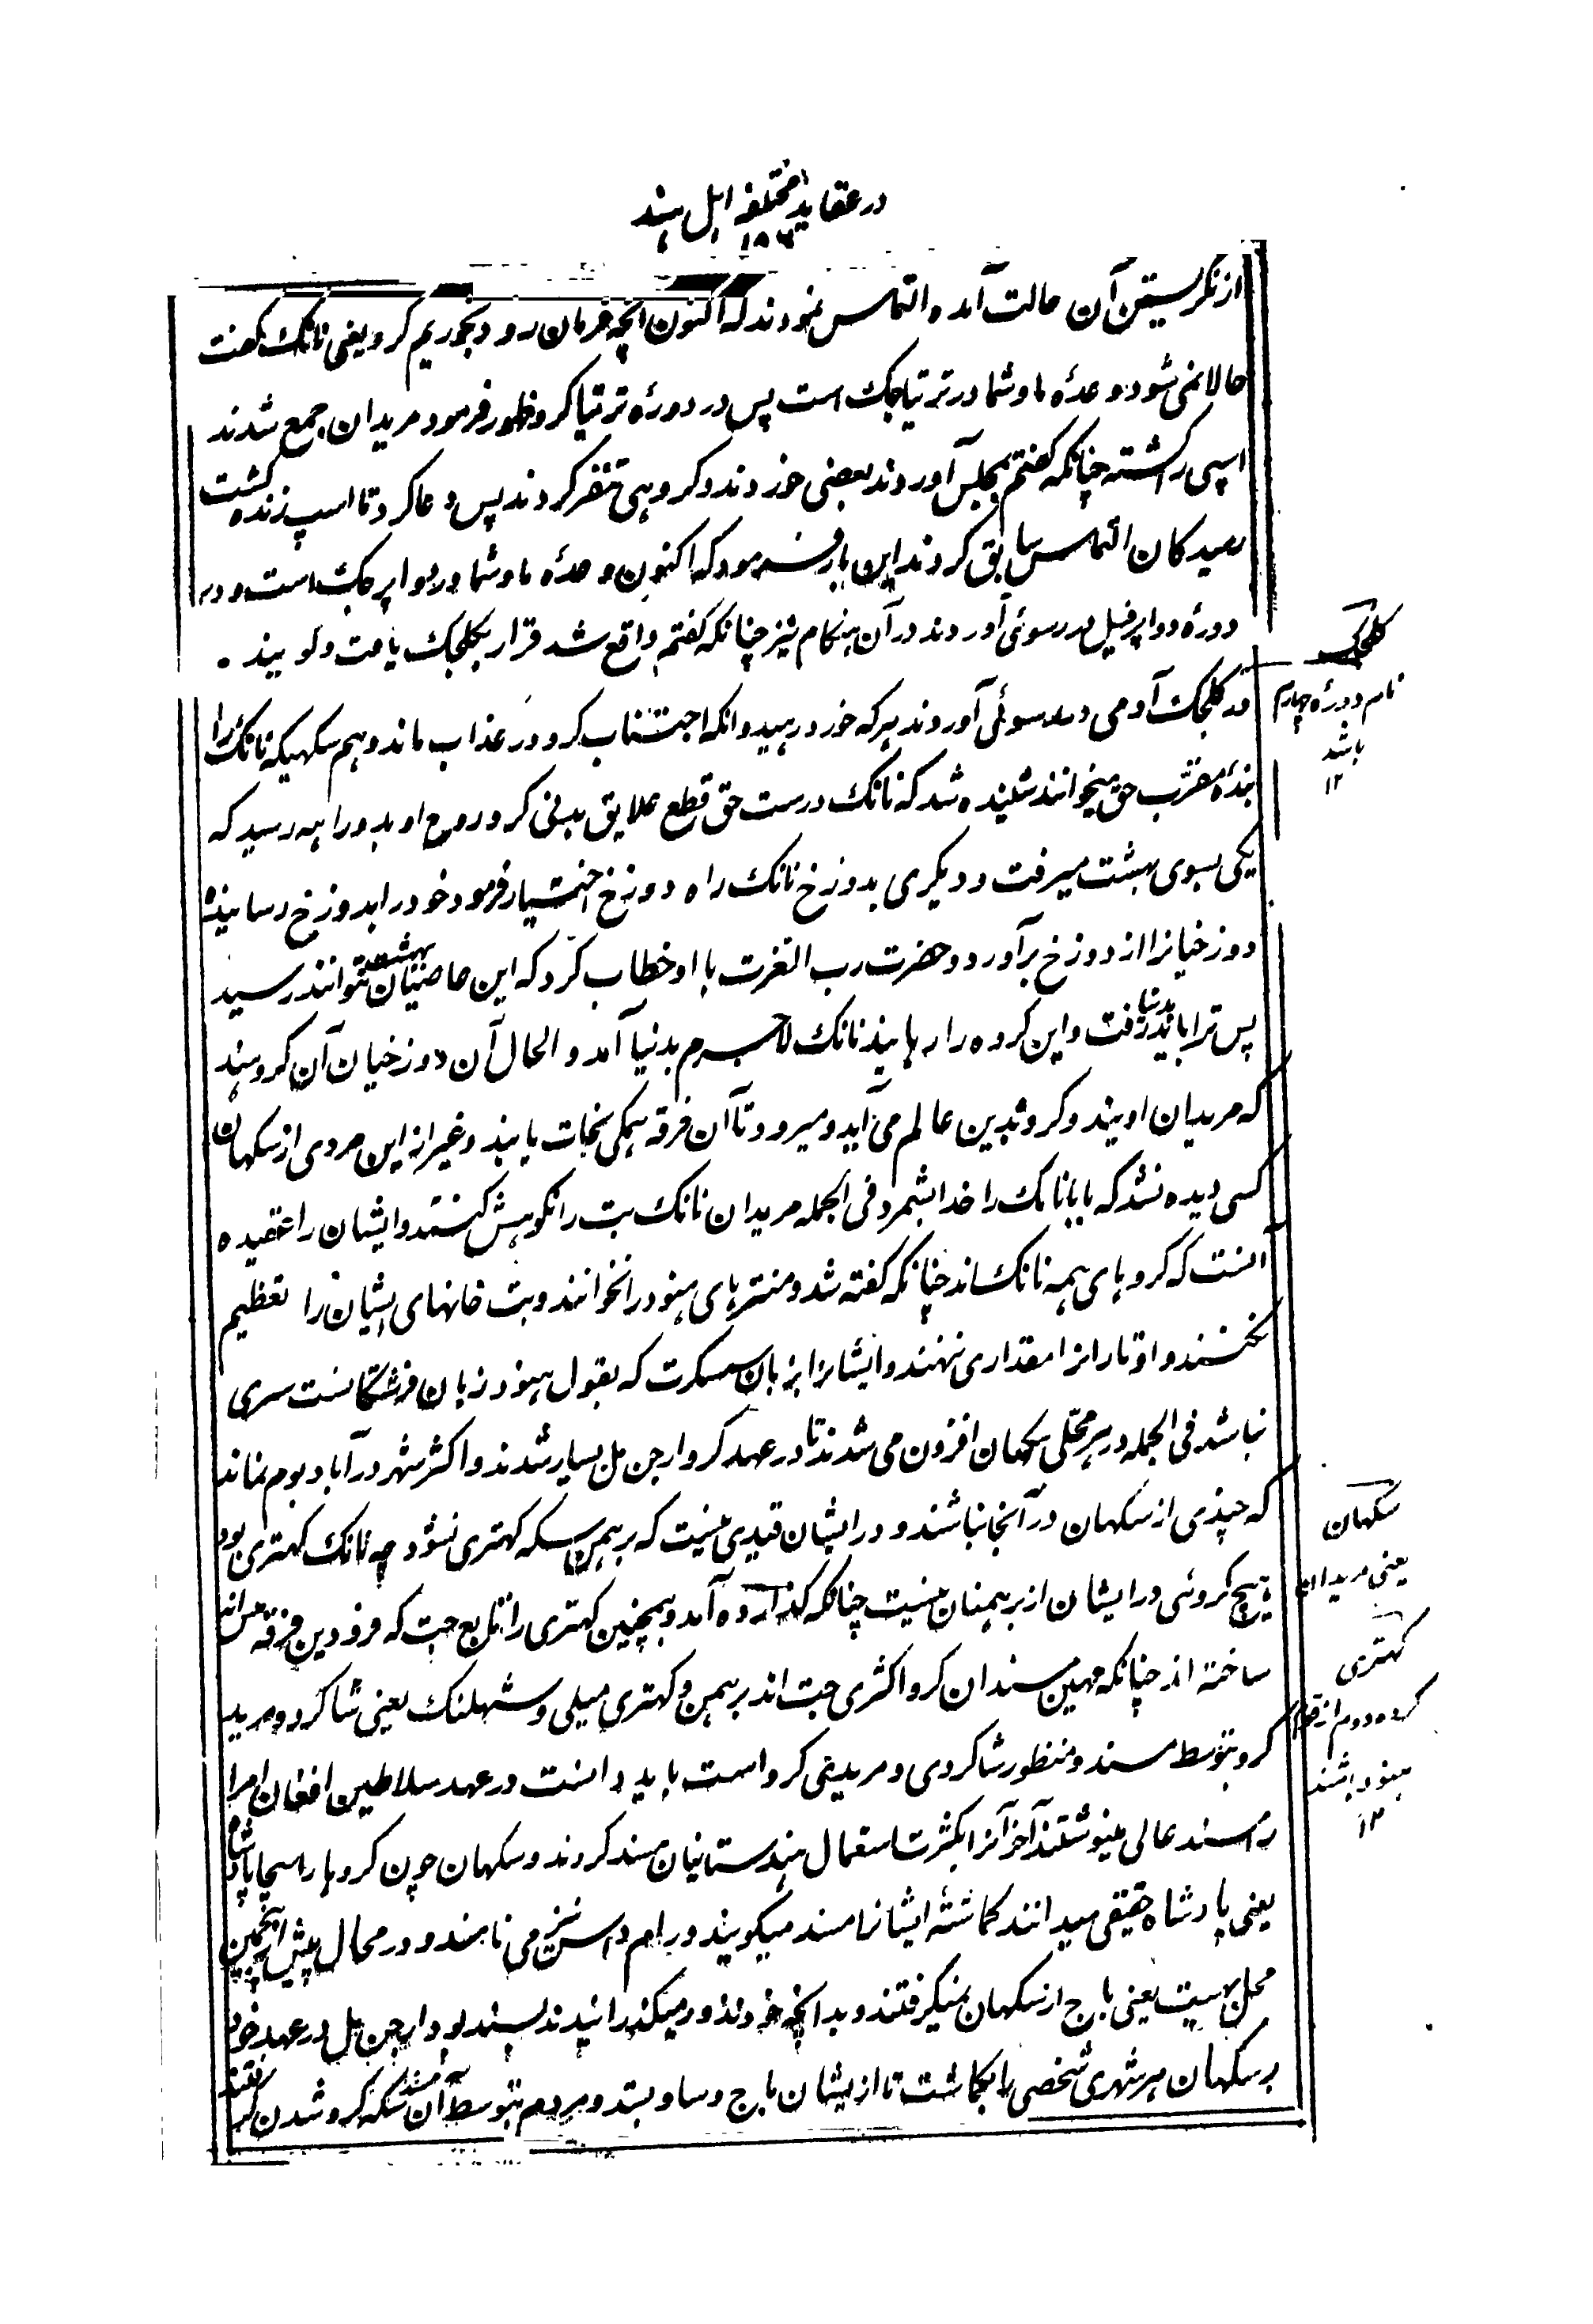 در عقاید مختلفه اهل هند
۱۸۳
از نگریستن آن حالت آمده التماس نمودند که اکنون انچه فرمان رود بخوریم کرو یعنی نانک گفت
حالا نمی شود وعدهٔ ما و شما در ترتیاجک است پس در دورهٔ ترتیا کرو ظهور فرمود مریدان جمع شدند
اسپی را کشته چنانکه گفتم بمجلس آوردند بعضی خوردند و کروهی تنفر کردند پس دعا کرد تا اسپ زنده گشت
رمیدکان التماس سابق کردند این بار فرمود که اکنون وعدهٔ ما و شما در دواپرجک است و در
دورهٔ دواپر فیل در رسوئی آوردند در آن هنکام نیز چنانکه گفتم واقع شد قرار بکلجک یافت و گویند ۰
در کلجک آدمی در رسوئی آوردند هر که خورد رهید و انکه اجتناب کرد در عذاب ماند و هم سکهیکه نانک را
بندهٔ مقرب حق میخوانند شنیده شد که نانک درست حق قطع علایق بدنی کرد روح او بدو راهه رسید که
یکی بسوی بهشت میرفت و دیکری بدوزخ نانک راه دوزخ اختیار فرمود خود را بدوزخ رسانیده
دوزخیانرا از دوزخ برآورد و حضرت رب العزت با او خطاب کرد که این عاصیان بهشت نتوانند رسید
پس ترا باید بدنیا رفت و این کروه را رهانید نانک لاجرم بدنیا آمد و الحال آن دوزخیان آن کروهند
که مریدان اویند و کرو بدین عالم می آید و میرود تا آن فرقه همکی نجات یابند و غیر از این مردی از سکهان
کسی دیده نشد که بابا نانک را خدا شمرد فی الجمله مریدان نانک بت را نکوهش کنند و ایشان را عقیده
آنست که کروهای همه نانک اند چنانکه گفته شد و منترهای هنود را نخوانند و بت خانهای ایشان را تعظیم
نکنند و اوتار را نرا مقداری ننهند و ایشانرا بزبان سهسکرت که بقول هنود زبان فرشتگانست سری
نباشد فی الجمله در هر محلی سکهان افزون می شدند تا در عهد کرو ارجن مل بسیار شدند و اکثر شهر در آباد بوم نماند
که چندی از سکهان در آنجا نباشند و در ایشان قیدی نیست که برهمن سکه کهتری نشود چه نانک کهتری بود
و هیچ کروئی در ایشان از برهمنان نیست چنانکه گذارده آمد و همچنین کهتری را تابع جت که فرودین فرقه بیش اند
ساخته اند چنانکه مهین مسندان کرو اکثری جت اند برهمن و کهتری میلی و سهلنک یعنی شاکرد و مرید
کرو بتوسط مسند و منظور شاکردی و مریدی کرو است باید دانست در عهد سلاطین افغان امرا
را مسند عالی مینوشتند آخر آنرا بکثرت استعمال هندستانیان مسند کردند و سکهان چون کروها را سچا پادشاه
یعنی پادشاه حقیقی میدانند کماشتهٔ ایشانرا مسند میکویند و رام داس نیز می نامند و در محال پیش از پنجمین
محل بهیت یعنی باج از سکهان نمیکرفتند و بدانچه خود نذور میکذرانیدند بسند بود ارجن مل در عهد خود
بر سکهان هر شهری شخصی را بکماشت تا از یشان باج و ساو ستد و مردم بتوسط آن مسند سکه کرو شدن کرفتند
کلجک
نام دورهٔ چهارم
باشد
۱۲
سکهان
یعنی مریدان
کهتری
کروه دوم از قوم
هنود باشند
۱۲